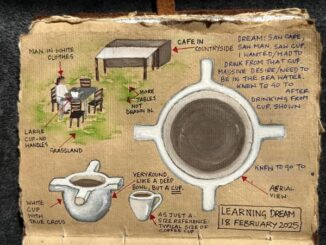 MAN IN WHITE
CLOTHES
CAFE IN
COUNTRYSIDE
MORE
TABLES
NOT
DRAWN IN
LARGE
CUP-NO
HANDLES
GRASSLAND
DREAM: SAW CAFE
SAW MAN. SAW CUP.
I WANTED/HAD TO
DRINK FROM THAT CUP
MASSIVE DESIRE/NEED TO
BE IN THE SEA WATER.
KNEW TO GO TO
AFTER
DRINKING FROM
CUP SHOWN
VERY ROUND
LIKE A DEEP
BOWL, BUT A CUP.
WHITE
CUP
WITH
TRUE CROSS
AS JUST A
SIZE REFERENCE:
TYPICAL SIZE OF
COFFEE CUP
KNEW TO GO TO
AERIAL
VIEW
LEARNING DREAM
18 FEBRUARY 2025